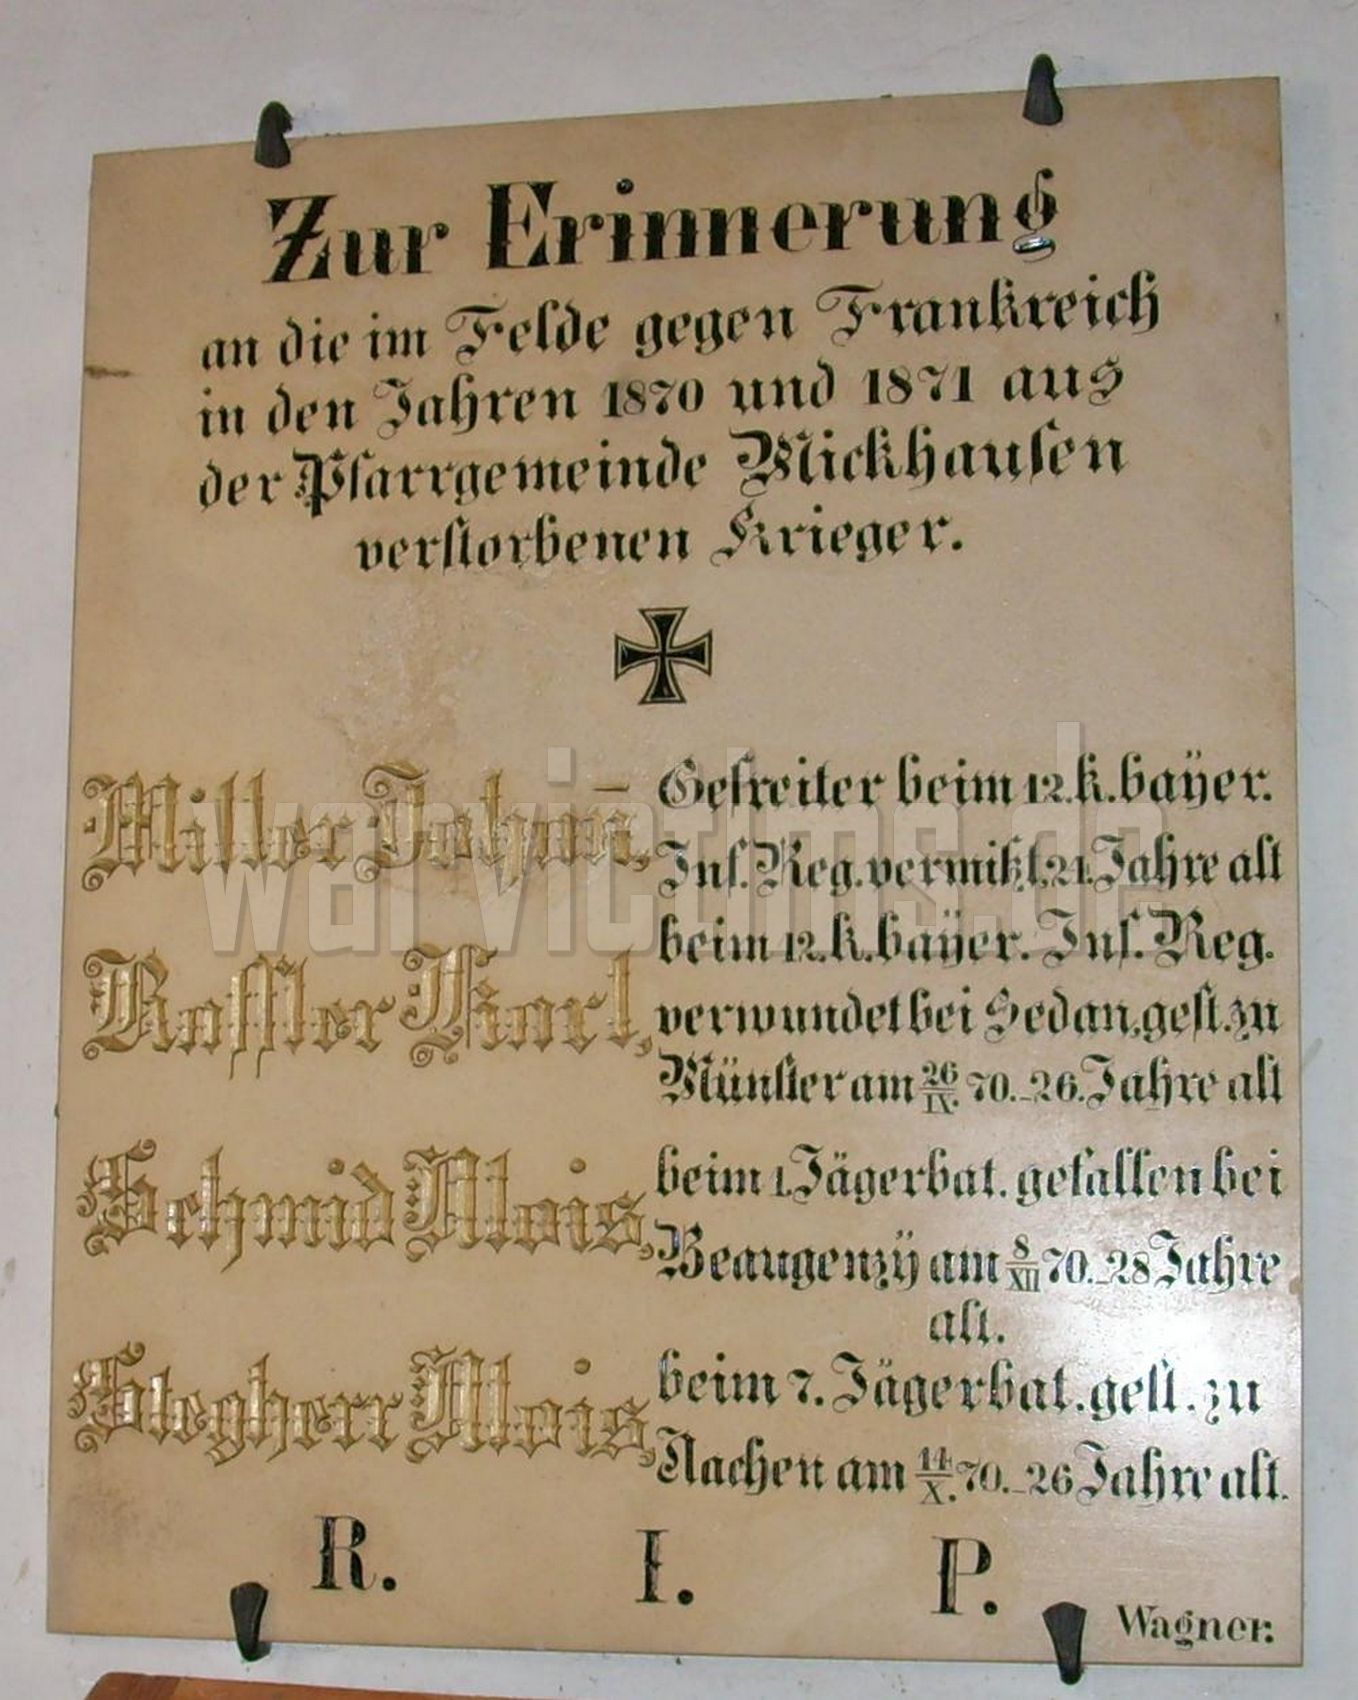 Zur Erinnerung
an die im Felde gegen Frankreich
in den Jahren 1870 und 1871 aus
der Pfarrgemeinde Mickhausen
verstorbenen Krieger.
Miller Johañ, Gefreiter beim 12. k. bayer.
Inf. Reg. vermißt, 21. Jahre alt
Rassler Karl, beim 12. k. bayer. Inf. Reg.
verwundet bei Sedan, gest. zu
Münster am 26/IX. 70. - 26. Jahre alt
Schmid Alois, beim 1. Jägerbat. gefallen bei
Beaugenzÿ am 8/XII 70. - 28 Jahre
alt.
Stegherr Alois, beim 7. Jägerbat. gest. zu
Aachen am 14/X. 70. - 26 Jahre alt.
R. I. P.
Wagner.
war-victims.de